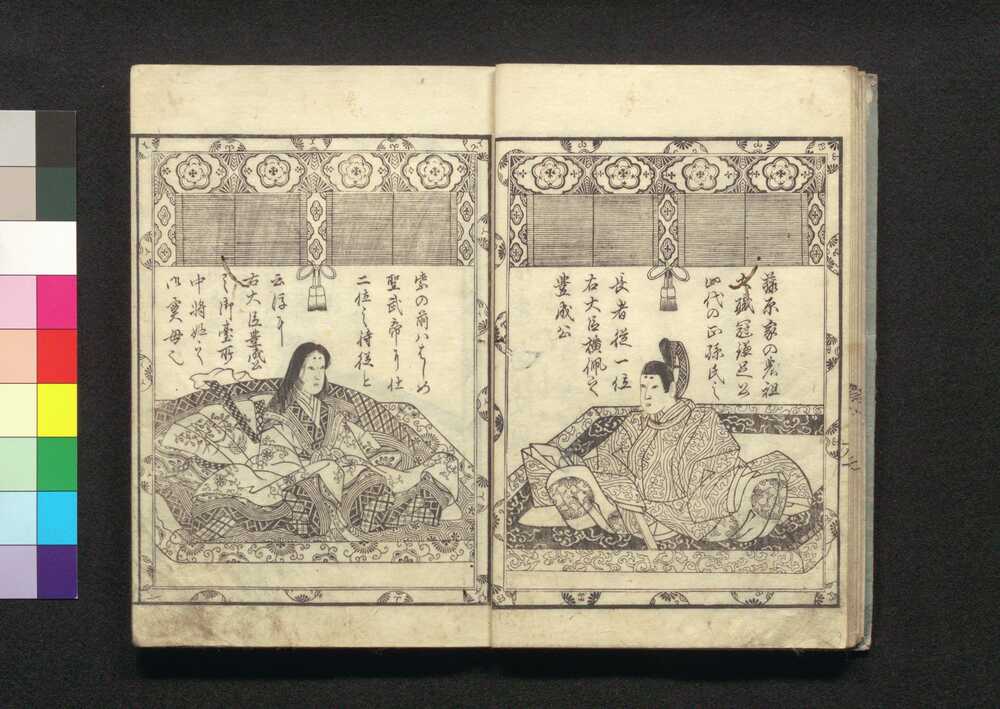 藤原家の農祖
大職冠鎌足公
四代の正孫民之
長者従一位
右大臣横佩之
豊成公
紫の前ハはじめ
聖武帝に仕
二位之侍従と
云淳
右大臣豊成公
之御臺所
中将姫之
御実母也